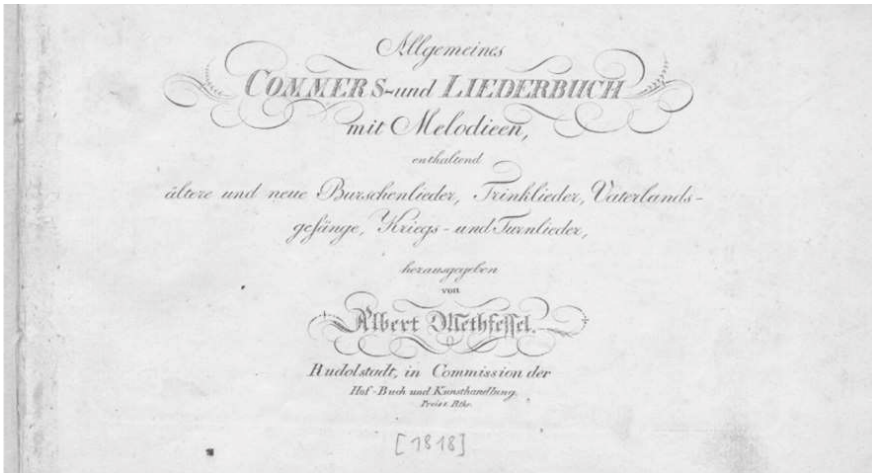 Allgemeines
COMMERS-und LIEDERBUCH
mit Melodieen,
enthaltend
ältere und neue Burschenlieder, Trinklieder, Vaterlands-
gesänge, Kriegs- und Turnlieder,
herausgegeben
von
Albert Methfessel.
Rudolstadt, in Commission der
Hof-Buch und Kunsthandlung.
[1818]